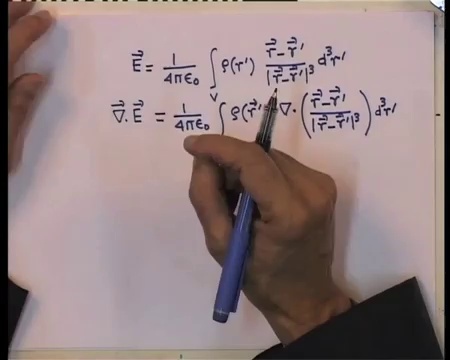 E⃗ = 1/4πε₀ ∫_V ρ(r') (r⃗ - r⃗')/|r⃗ - r⃗'|³ d³r'
∇⃗ · E⃗ = 1/4πε₀ ∫ ρ(r⃗' ∇ · ( (r⃗ - r⃗')/|r⃗ - r⃗'|³ ) d³r'